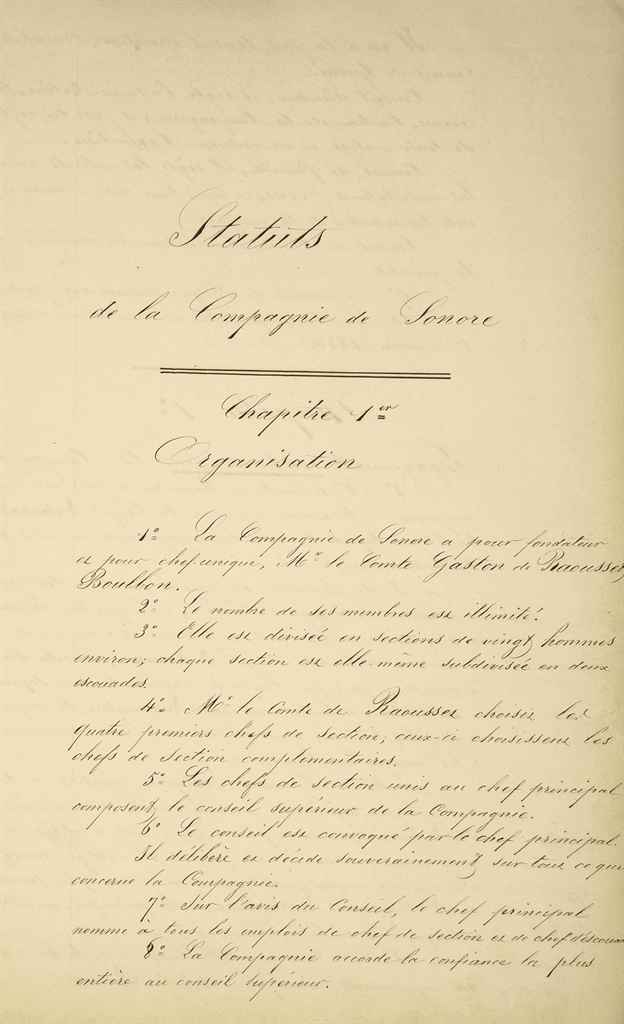 Statuts
de la Compagnie de Sonore
Chapitre 1er
Organisation
1º La Compagnie de Sonore a pour fondateur
et pour chef unique, Mr le Comte Gaston de Raousset
Boulbon.
2º Le nombre de ses membres est illimité.
3º Elle est divisée en sections de vingt hommes
environ; chaque section est elle-même subdivisée en deux
escouades.
4º Mr le Comte de Raousset choisit les
quatre premiers chefs de section; ceux-ci choisissent les
chefs de section complémentaires.
5º Les chefs de section unis au chef principal
composent le conseil supérieur de la Compagnie.
6º Le conseil est convoqué par le chef principal.
Il délibère et décide souverainement sur tout ce qui
concerne la Compagnie.
7º Sur l'avis du Conseil, le chef principal
nomme à tous les emplois de chef de section et de chef d'escouade
8º La Compagnie accorde la confiance la plus
entière au conseil supérieur.